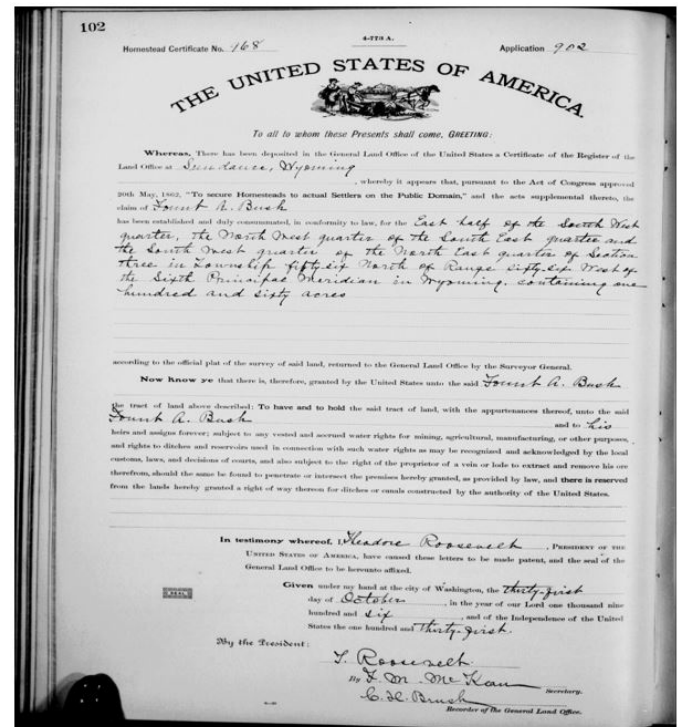 102
4-773 A.
Homestead Certificate No. 168
Application 902
THE UNITED STATES OF AMERICA.
To all to whom these Presents shall come, GREETING:
Whereas, There has been deposited in the General Land Office of the United States a Certificate of the Register of the
Land Office at Sundance, Wyoming
, whereby it appears that, pursuant to the Act of Congress approved
20th May, 1862, "To secure Homesteads to actual Settlers on the Public Domain," and the acts supplemental thereto, the
claim of Fount A. Bush
has been established and duly consummated, in conformity to law, for the East half of the South West
quarter, the North West quarter of the South East quarter and
the South West quarter of the North East quarter of Section
three in Township fifty-six North of Range sixty-six West of
the Sixth Principal Meridian in Wyoming, containing one
hundred and sixty acres
according to the official plat of the survey of said land, returned to the General Land Office by the Surveyor General.
Now know ye that there is, therefore, granted by the United States unto the said Fount A. Bush
the tract of land above described: To have and to hold the said tract of land, with the appurtenances thereof, unto the said
Fount A. Bush and to his
heirs and assigns forever; subject to any vested and accrued water rights for mining, agricultural, manufacturing, or other purposes,
and rights to ditches and reservoirs used in connection with such water rights as may be recognized and acknowledged by the local
customs, laws, and decisions of courts, and also subject to the right of the proprietor of a vein or lode to extract and remove his ore
therefrom, should the same be found to penetrate or intersect the premises hereby granted, as provided by law, and there is reserved
from the lands hereby granted a right of way thereon for ditches or canals constructed by the authority of the United States.
In testimony whereof, I, Theodore Roosevelt, PRESIDENT OF THE
UNITED STATES OF AMERICA, have caused these letters to be made patent, and the seal of the
General Land Office to be hereunto affixed.
Given under my hand at the city of Washington, the thirty-first
day of October, in the year of our Lord one thousand nine
hundred and six, and of the Independence of the United
States the one hundred and thirty-first.
SEAL
By the President:
T. Roosevelt
By F. M. McKean
Secretary.
C. H. Brush
Recorder of the General Land Office.